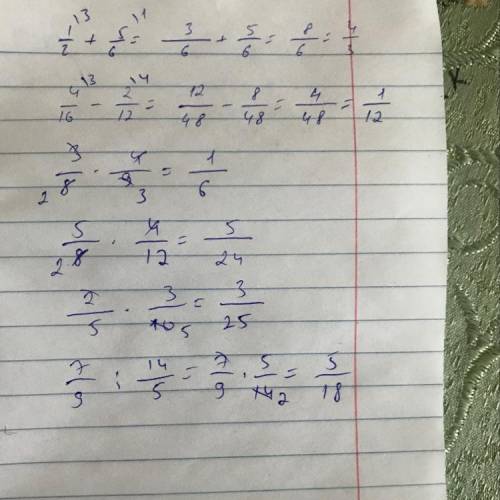 1/2 \3 + 5/6 \1 = 3/6 + 5/6 = 8/6 = 4/3
4/16 \3 - 2/12 \4 = 12/48 - 8/48 = 4/48 = 1/12
3/8 2 · 4/9 3 = 1/6
5/8 2 · 4/12 = 5/24
2/5 · 3/10 5 = 3/25
7/9 : 14/5 = 7/9 · 5/14 2 = 5/18